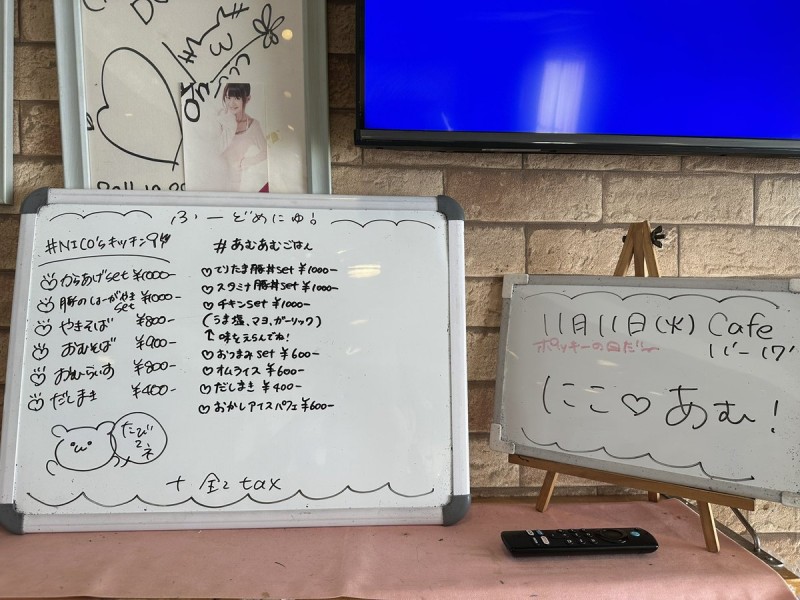 ふーどめにゅ!
#NICO'sキッチン
からあげset ¥1000-
豚のしょーがやき set ¥1000-
やきそば ¥800-
おむそば ¥900-
おむらいす ¥800-
だしまき ¥400-
たべてネ
#あむあむごはん
てりたま豚丼set ¥1000-
スタミナ豚丼set ¥1000-
チキンset ¥1000-
(うま塩、マヨ、ガーリック)
↑味をえらんでね!
おつまみset ¥600-
オムライス ¥600-
だしまき ¥400-
おかしアイスパフェ ¥600-
+ 全て tax
11月11日(火) Cafe
ポッキーの日だ
11'-17'
にこ♡あむ!